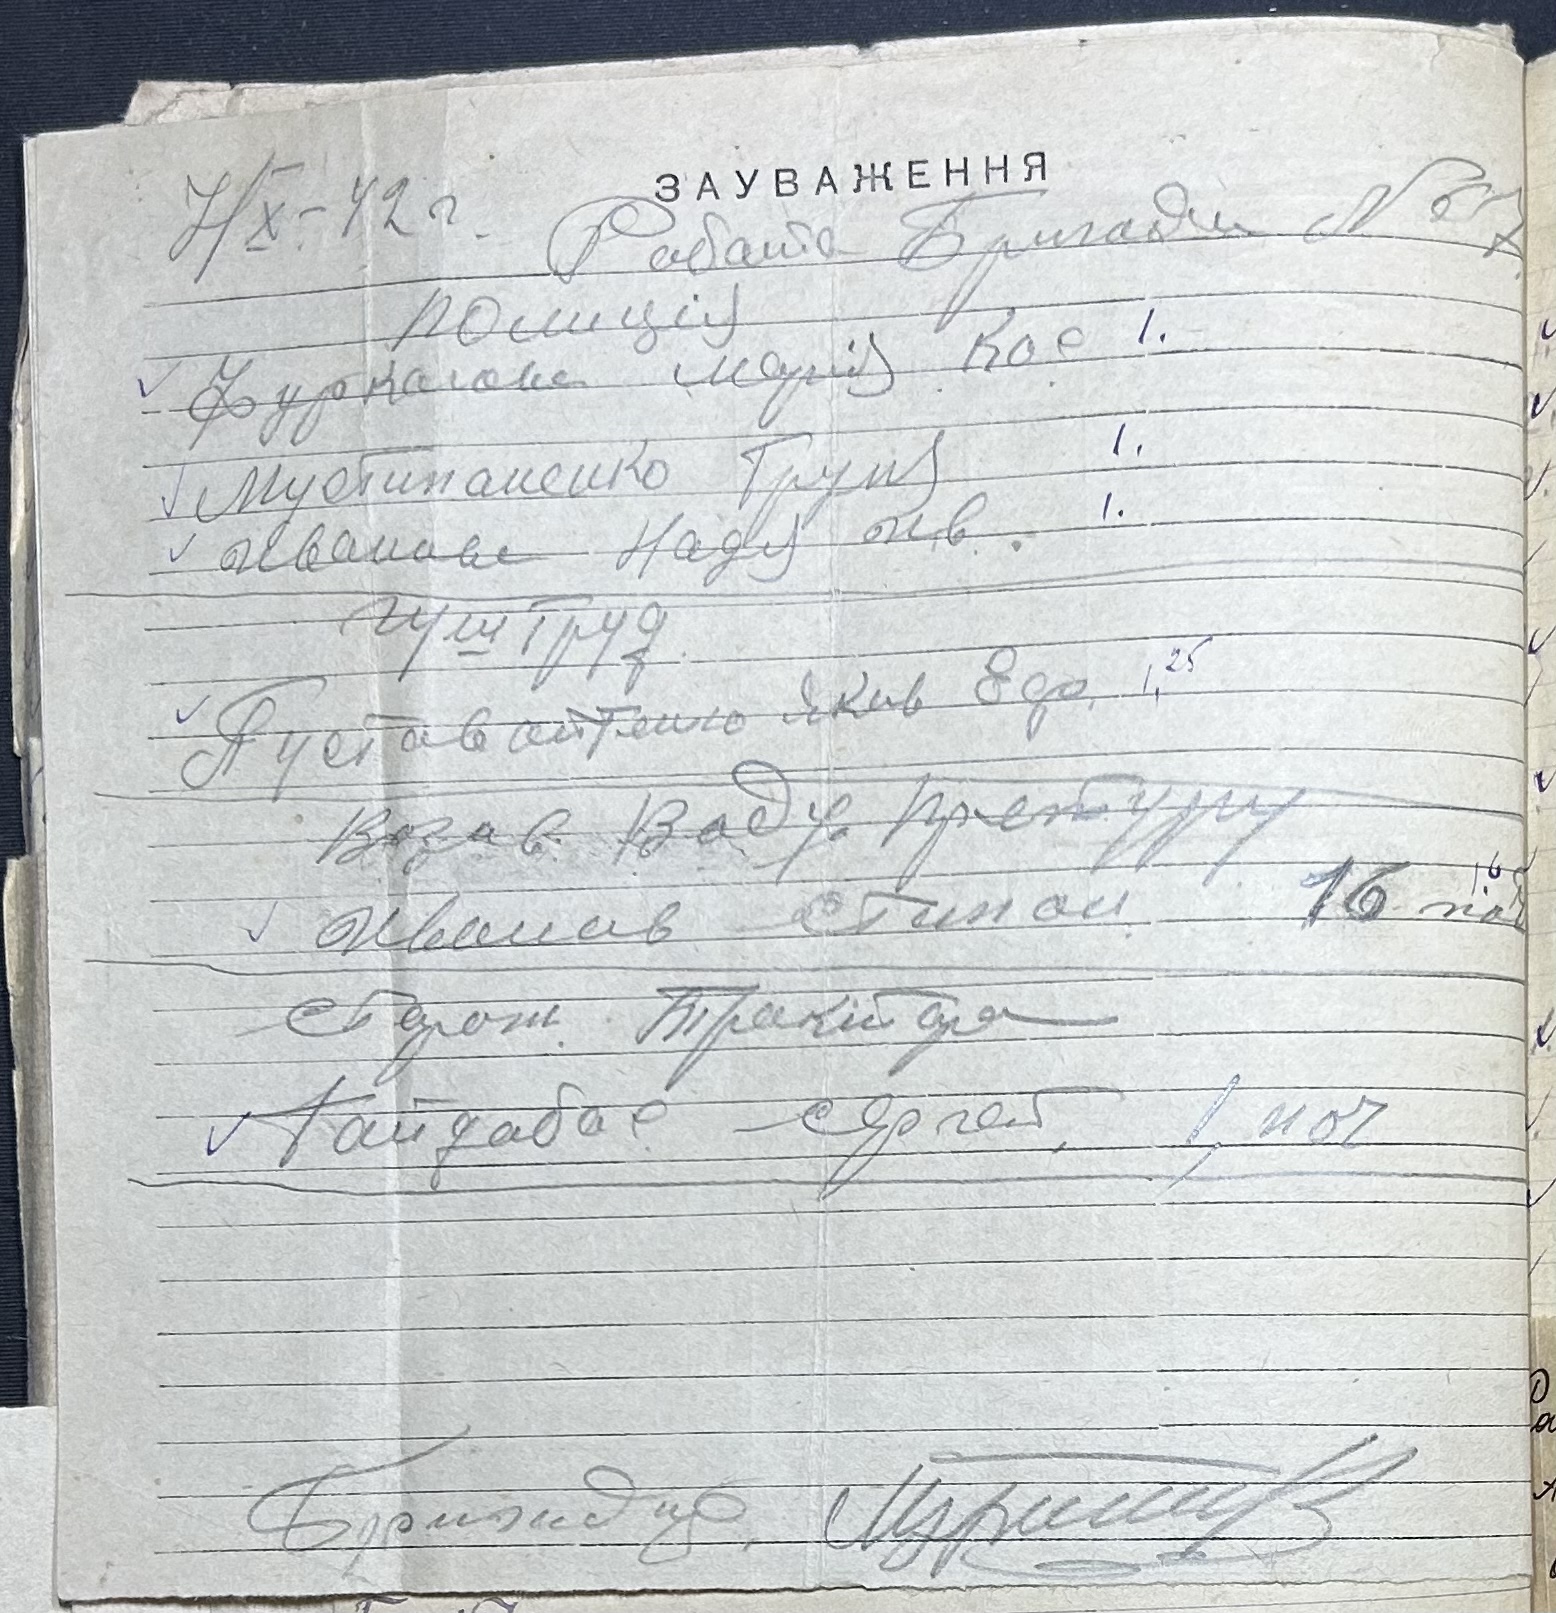 ЗАУВАЖЕННЯ
7/X-42 г. Работа Бригади № 7
полиція
Фуркалова Марія Кос 1.
Мустипаненко Груня 1.
Иванова Надя Ив. 1.
гуштруд
Пуставойтенко Яков Едо. 1,25
Возив Воду Претуру
Иванов Стипан 16
Сторож Трактора
Гайдабас Сергей, 1 ноч
Бригадир